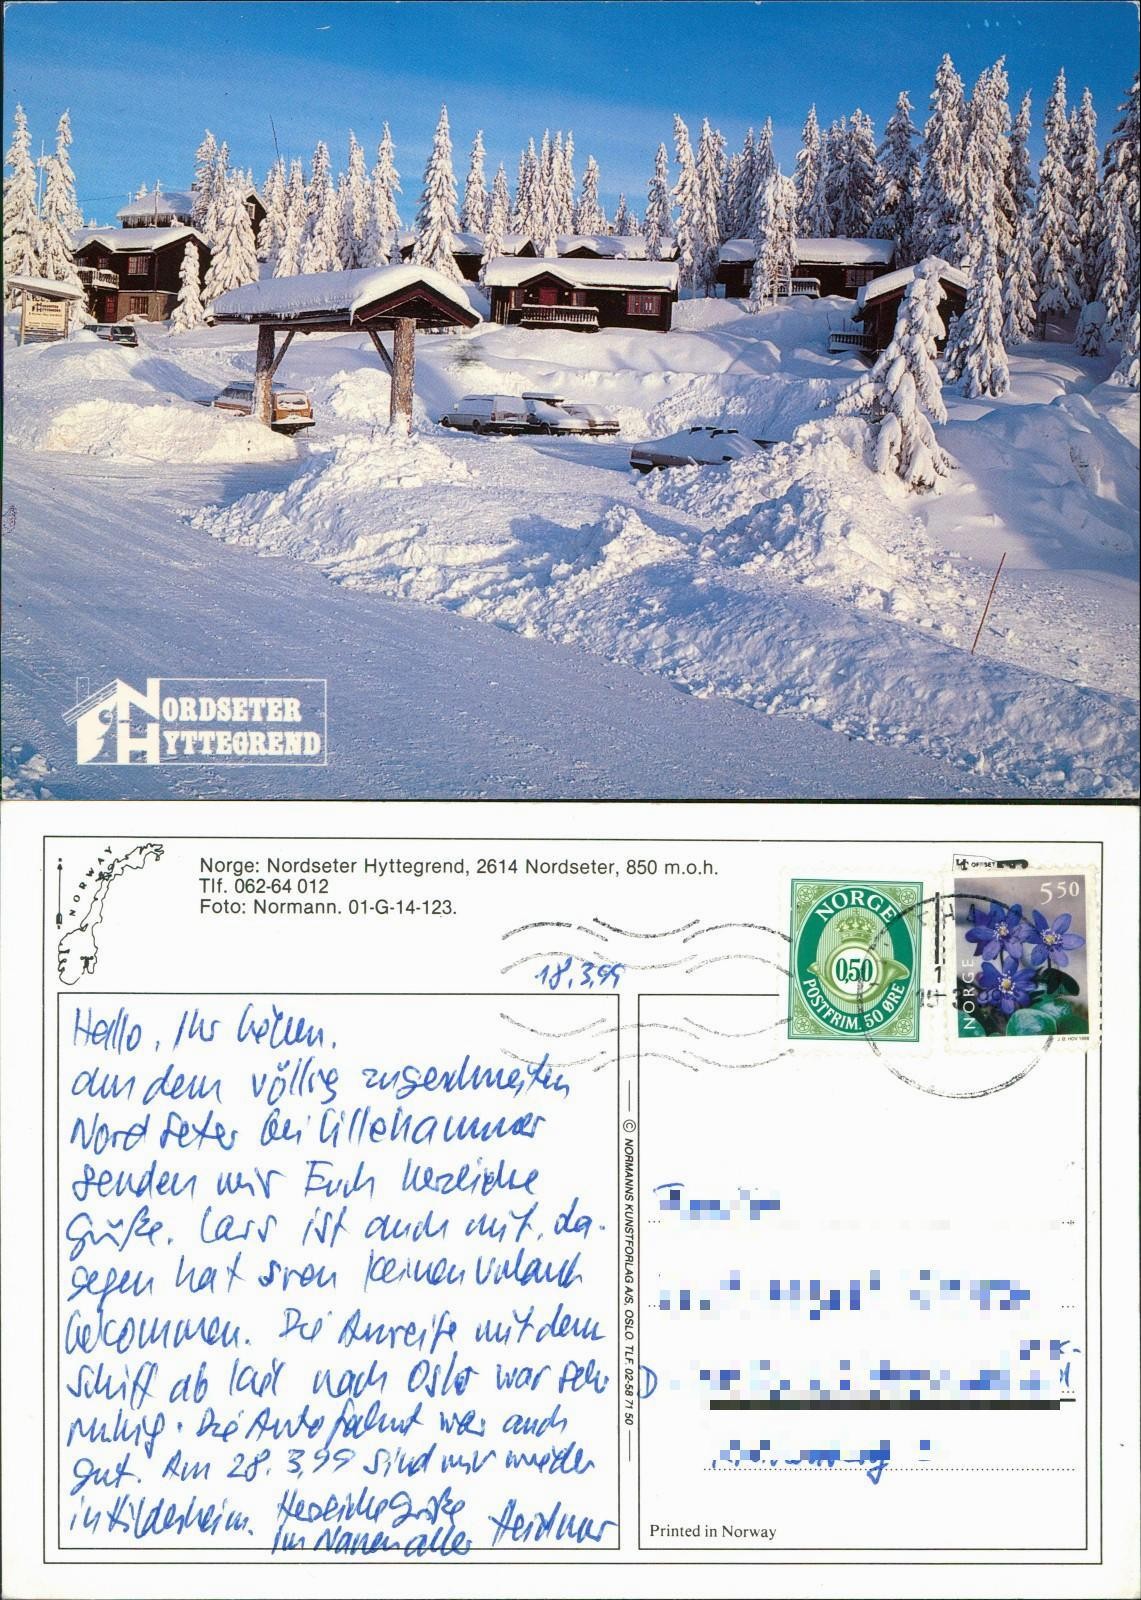 NORDSETER
HYTTEGREND
NORWAY
Norge: Nordseter Hyttegrend, 2614 Nordseter, 850 m.o.h.
Tlf. 062-64 012
Foto: Normann. 01-G-14-123.
OFFSET
NORGE
0,50
POSTFRIM. 50 ØRE
5 50
NORGE
18.3.99
Hallo, Ihr Lieben.
aus dem völlig zugeschneiten
Nordseter bei Lillehammer
senden wir Euch herzliche
Grüße. Lars ist auch mit, da-
gegen hat Sven keinen Urlaub
bekommen. Die Anreise mit dem
Schiff ab Kiel nach Oslo war sehr
ruhig. Die Autofahrt war auch
gut. Am 28.3.99 sind wir wieder
in Hildesheim. Herzliche Grüße
Im Namen aller
© NORMANNS KUNSTFORLAG A/S, OSLO. TLF. 02-58 71 50
D
Printed in Norway